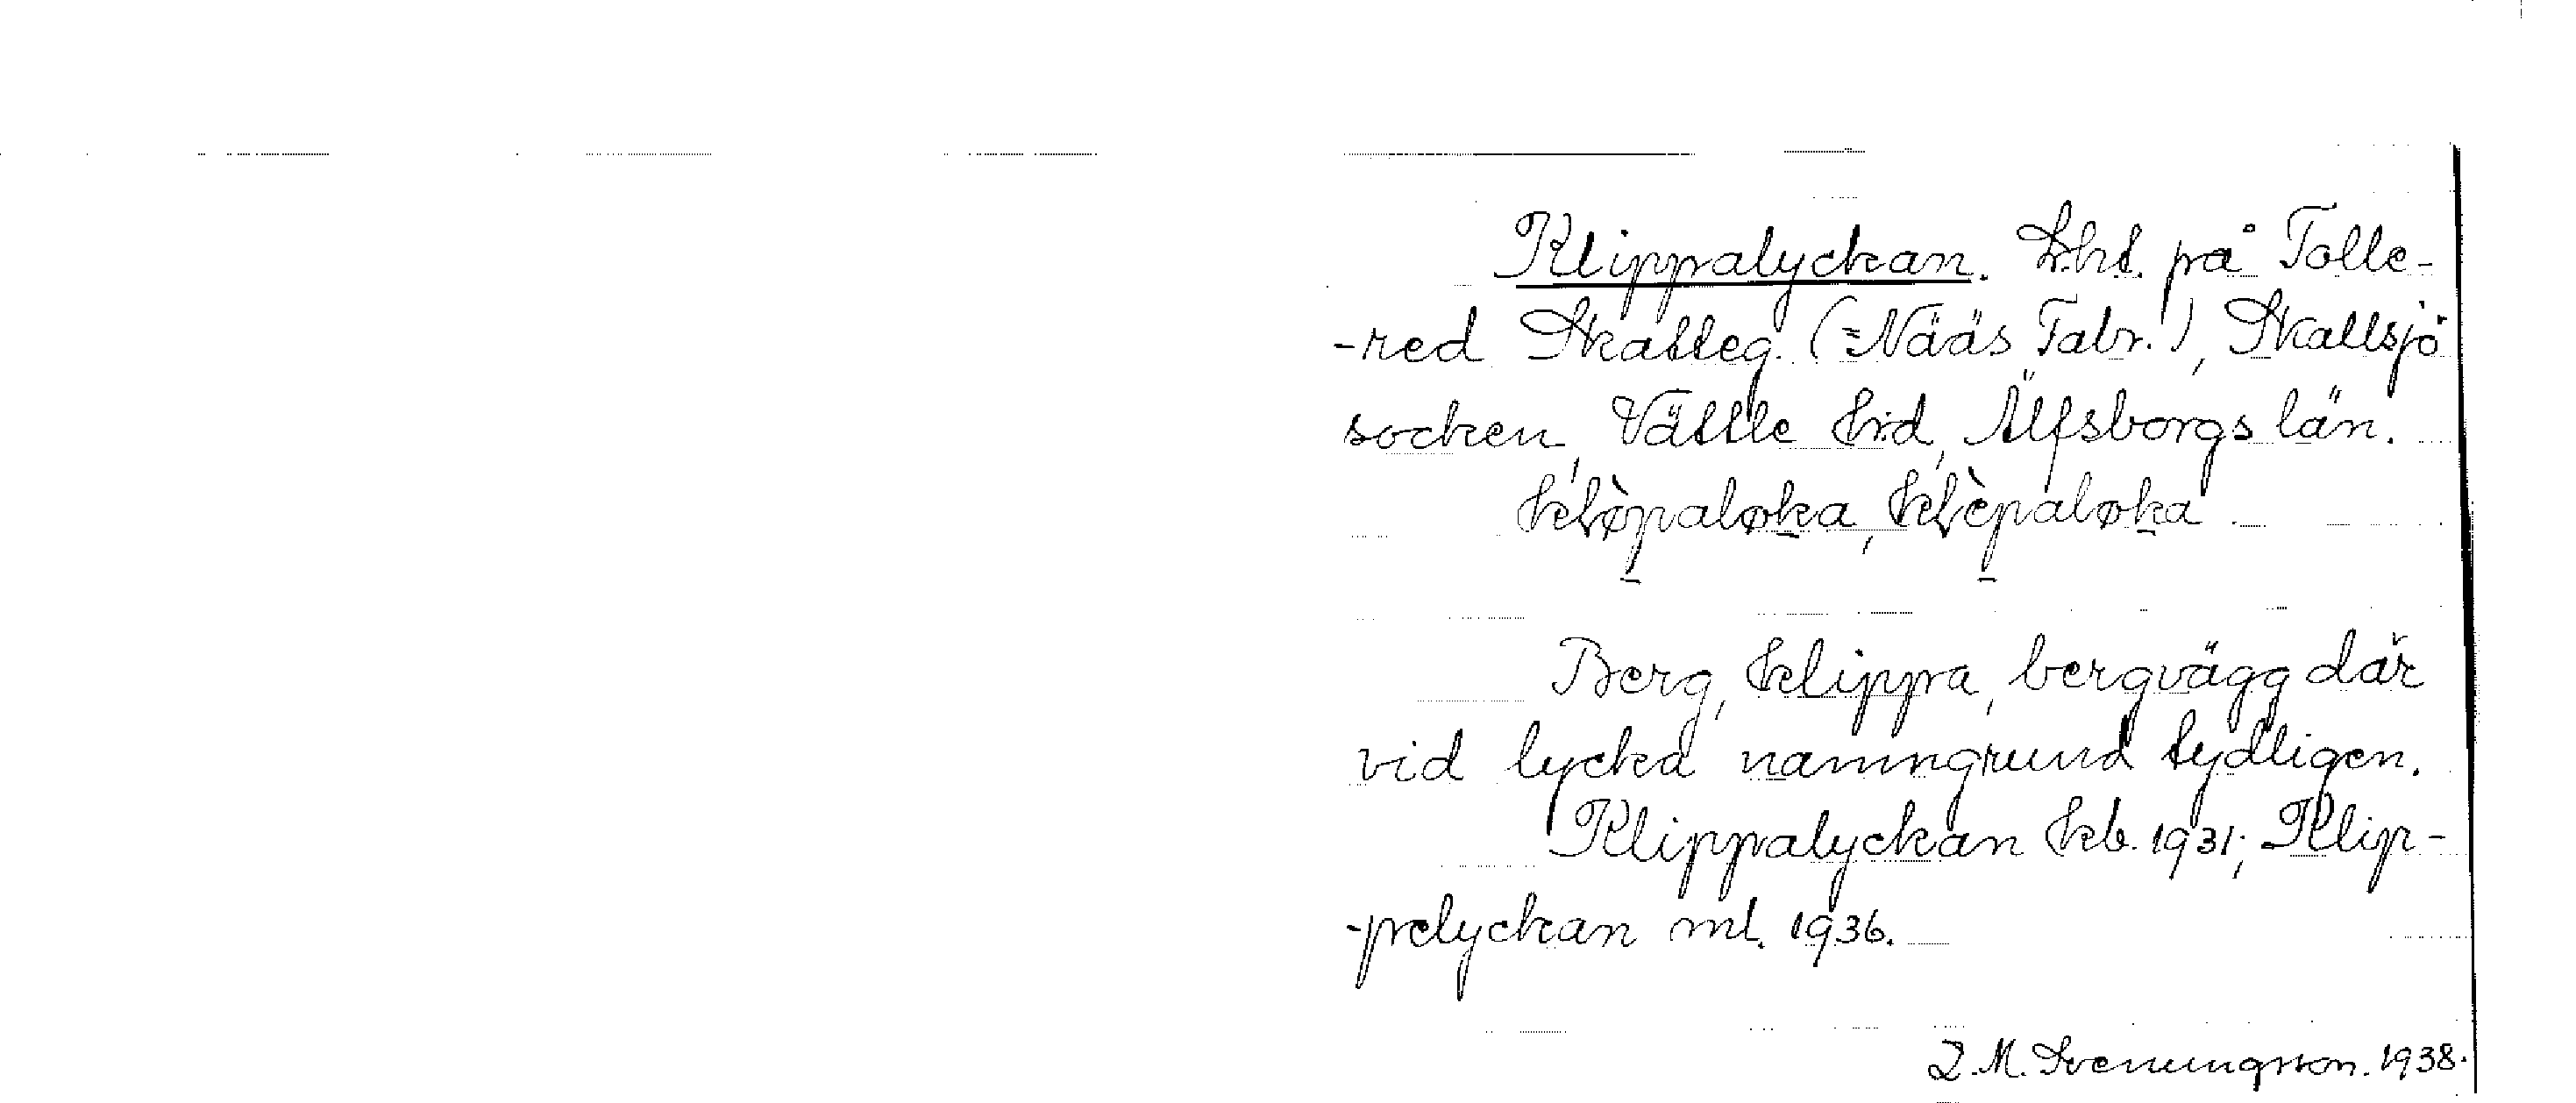 Klippalyckan. Lht. på Tolle-
-red Skatteg. (=Nääs Fabr.), Skallsjö
socken, Vättle hrd, Älfsborgs län.
klòpaløka, klèpaløka
Berg, klippa, bergvägg där
vid lycka namngrund tydligen.
Klippalyckan kb. 1931; Klip-
-pelyckan ml. 1936.
M. Svenungsson. 1938.